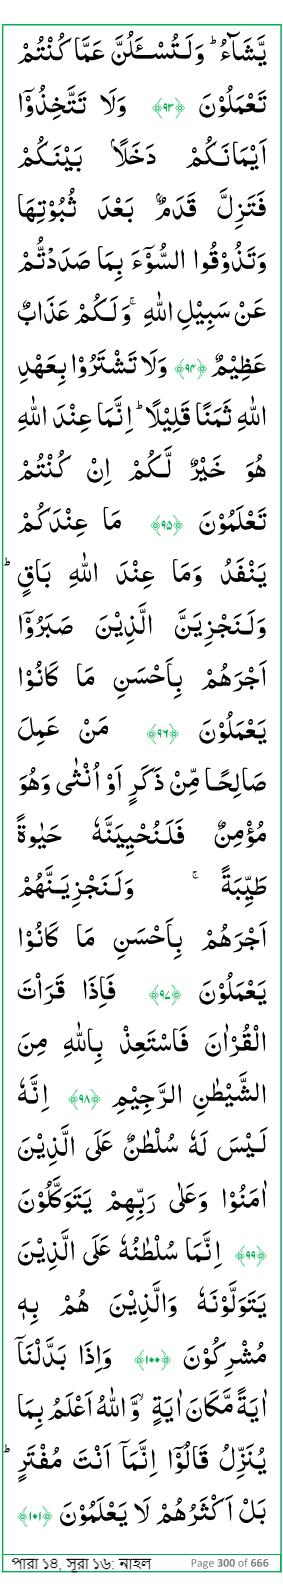 يَّشَآءُ ؕ وَلَتُسْـَٔلُنَّ عَمَّا كُنْتُمْ
تَعْمَلُوْنَ ﴿۹۳﴾ وَلَا تَتَّخِذُوْۤا
اَيْمَانَكُمْ دَخَلًاۢ بَيْنَكُمْ
فَتَزِلَّ قَدَمٌۢ بَعْدَ ثُبُوْتِهَا
وَتَذُوْقُوا السُّوْٓءَ بِمَا صَدَدْتُّمْ
عَنْ سَبِيْلِ اللّٰهِ ۚ وَلَكُمْ عَذَابٌ
عَظِيْمٌ ﴿۹۴﴾ وَلَا تَشْتَرُوْا بِعَهْدِ
اللّٰهِ ثَمَنًا قَلِيْلًا ؕ اِنَّمَا عِنْدَ اللّٰهِ
هُوَ خَيْرٌ لَّكُمْ اِنْ كُنْتُمْ
تَعْلَمُوْنَ ﴿۹۵﴾ مَا عِنْدَكُمْ
يَنْفَدُ وَمَا عِنْدَ اللّٰهِ بَاقٍ ؕ
وَلَنَجْزِيَنَّ الَّذِيْنَ صَبَرُوْۤا
اَجْرَهُمْ بِاَحْسَنِ مَا كَانُوْا
يَعْمَلُوْنَ ﴿۹۶﴾ مَنْ عَمِلَ
صَالِحًا مِّنْ ذَكَرٍ اَوْ اُنْثٰى وَهُوَ
مُؤْمِنٌ فَلَنُحْيِيَنَّهٗ حَيٰوةً
طَيِّبَةً ۚ وَلَنَجْزِيَنَّهُمْ
اَجْرَهُمْ بِاَحْسَنِ مَا كَانُوْا
يَعْمَلُوْنَ ﴿۹۷﴾ فَاِذَا قَرَاْتَ
الْقُرْاٰنَ فَاسْتَعِذْ بِاللّٰهِ مِنَ
الشَّيْطٰنِ الرَّجِيْمِ ﴿۹۸﴾ اِنَّهٗ
لَيْسَ لَهٗ سُلْطٰنٌ عَلَى الَّذِيْنَ
اٰمَنُوْا وَعَلٰى رَبِّهِمْ يَتَوَكَّلُوْنَ
﴿۹۹﴾ اِنَّمَا سُلْطٰنُهٗ عَلَى الَّذِيْنَ
يَتَوَلَّوْنَهٗ وَالَّذِيْنَ هُمْ بِهٖ
مُشْرِكُوْنَ ﴿۱۰۰﴾ وَاِذَا بَدَّلْنَاۤ
اٰيَةً مَّكَانَ اٰيَةٍ ۙ وَّاللّٰهُ اَعْلَمُ بِمَا
يُنَزِّلُ قَالُوْۤا اِنَّمَاۤ اَنْتَ مُفْتَرٍ ؕ
بَلْ اَكْثَرُهُمْ لَا يَعْلَمُوْنَ ﴿۱۰۱﴾
পারা ১৪, সূরা ১৬: নাহল Page 300 of 666